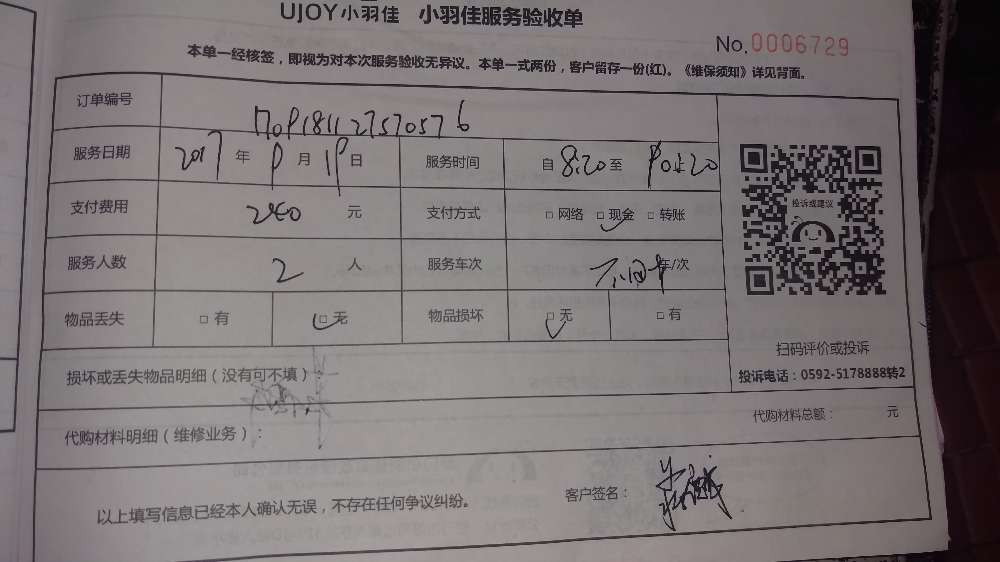 UJOY小羽佳 小羽佳服务验收单
No.0006729
本单一经核签，即视为对本次服务验收无异议。本单一式两份，客户留存一份(红)。《维保须知》详见背面。
订单编号
服务日期 2017年 月 日 服务时间 自8:20至
支付费用 元 支付方式 □网络 □现金 □转账
服务人数 2 人 服务车次 车/次
投诉或建议
物品丢失 □有 □无 物品损坏 □无 □有
扫码评价或投诉
损坏或丢失物品明细（没有可不填）：
投诉电话：0592-5178888转2
代购材料明细（维修业务）：
代购材料总额： 元
以上填写信息已经本人确认无误，不存在任何争议纠纷。 客户签名：